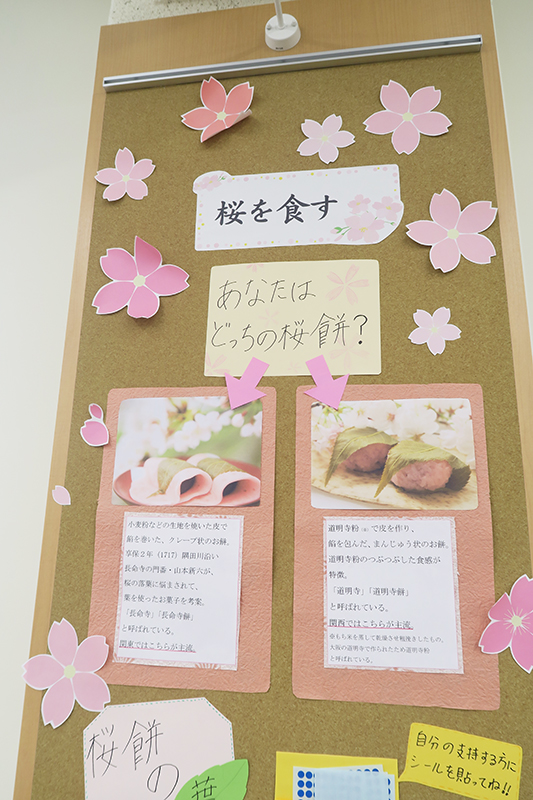 桜を食す
あなたは
どっちの桜餅？
小麦粉などの生地を焼いた皮で
餡を巻いた、クレープ状のお餅。
享保２年（1717）隅田川沿い
長命寺の門番・山本新六が、
桜の落葉に悩まされて、
葉を使ったお菓子を考案。
「長命寺」「長命寺餅」
と呼ばれている。
関東ではこちらが主流。
道明寺粉※で皮を作り、
餡を包んだ、まんじゅう状のお餅。
道明寺粉のつぶつぶした食感が
特徴。
「道明寺」「道明寺餅」
と呼ばれている。
関西ではこちらが主流
※もち米を蒸して乾燥させ粗挽きしたもの。
大阪の道明寺で作られたため道明寺粉
と呼ばれている。
桜餅
の
葉
自分の支持する方に
シールを貼ってね!!